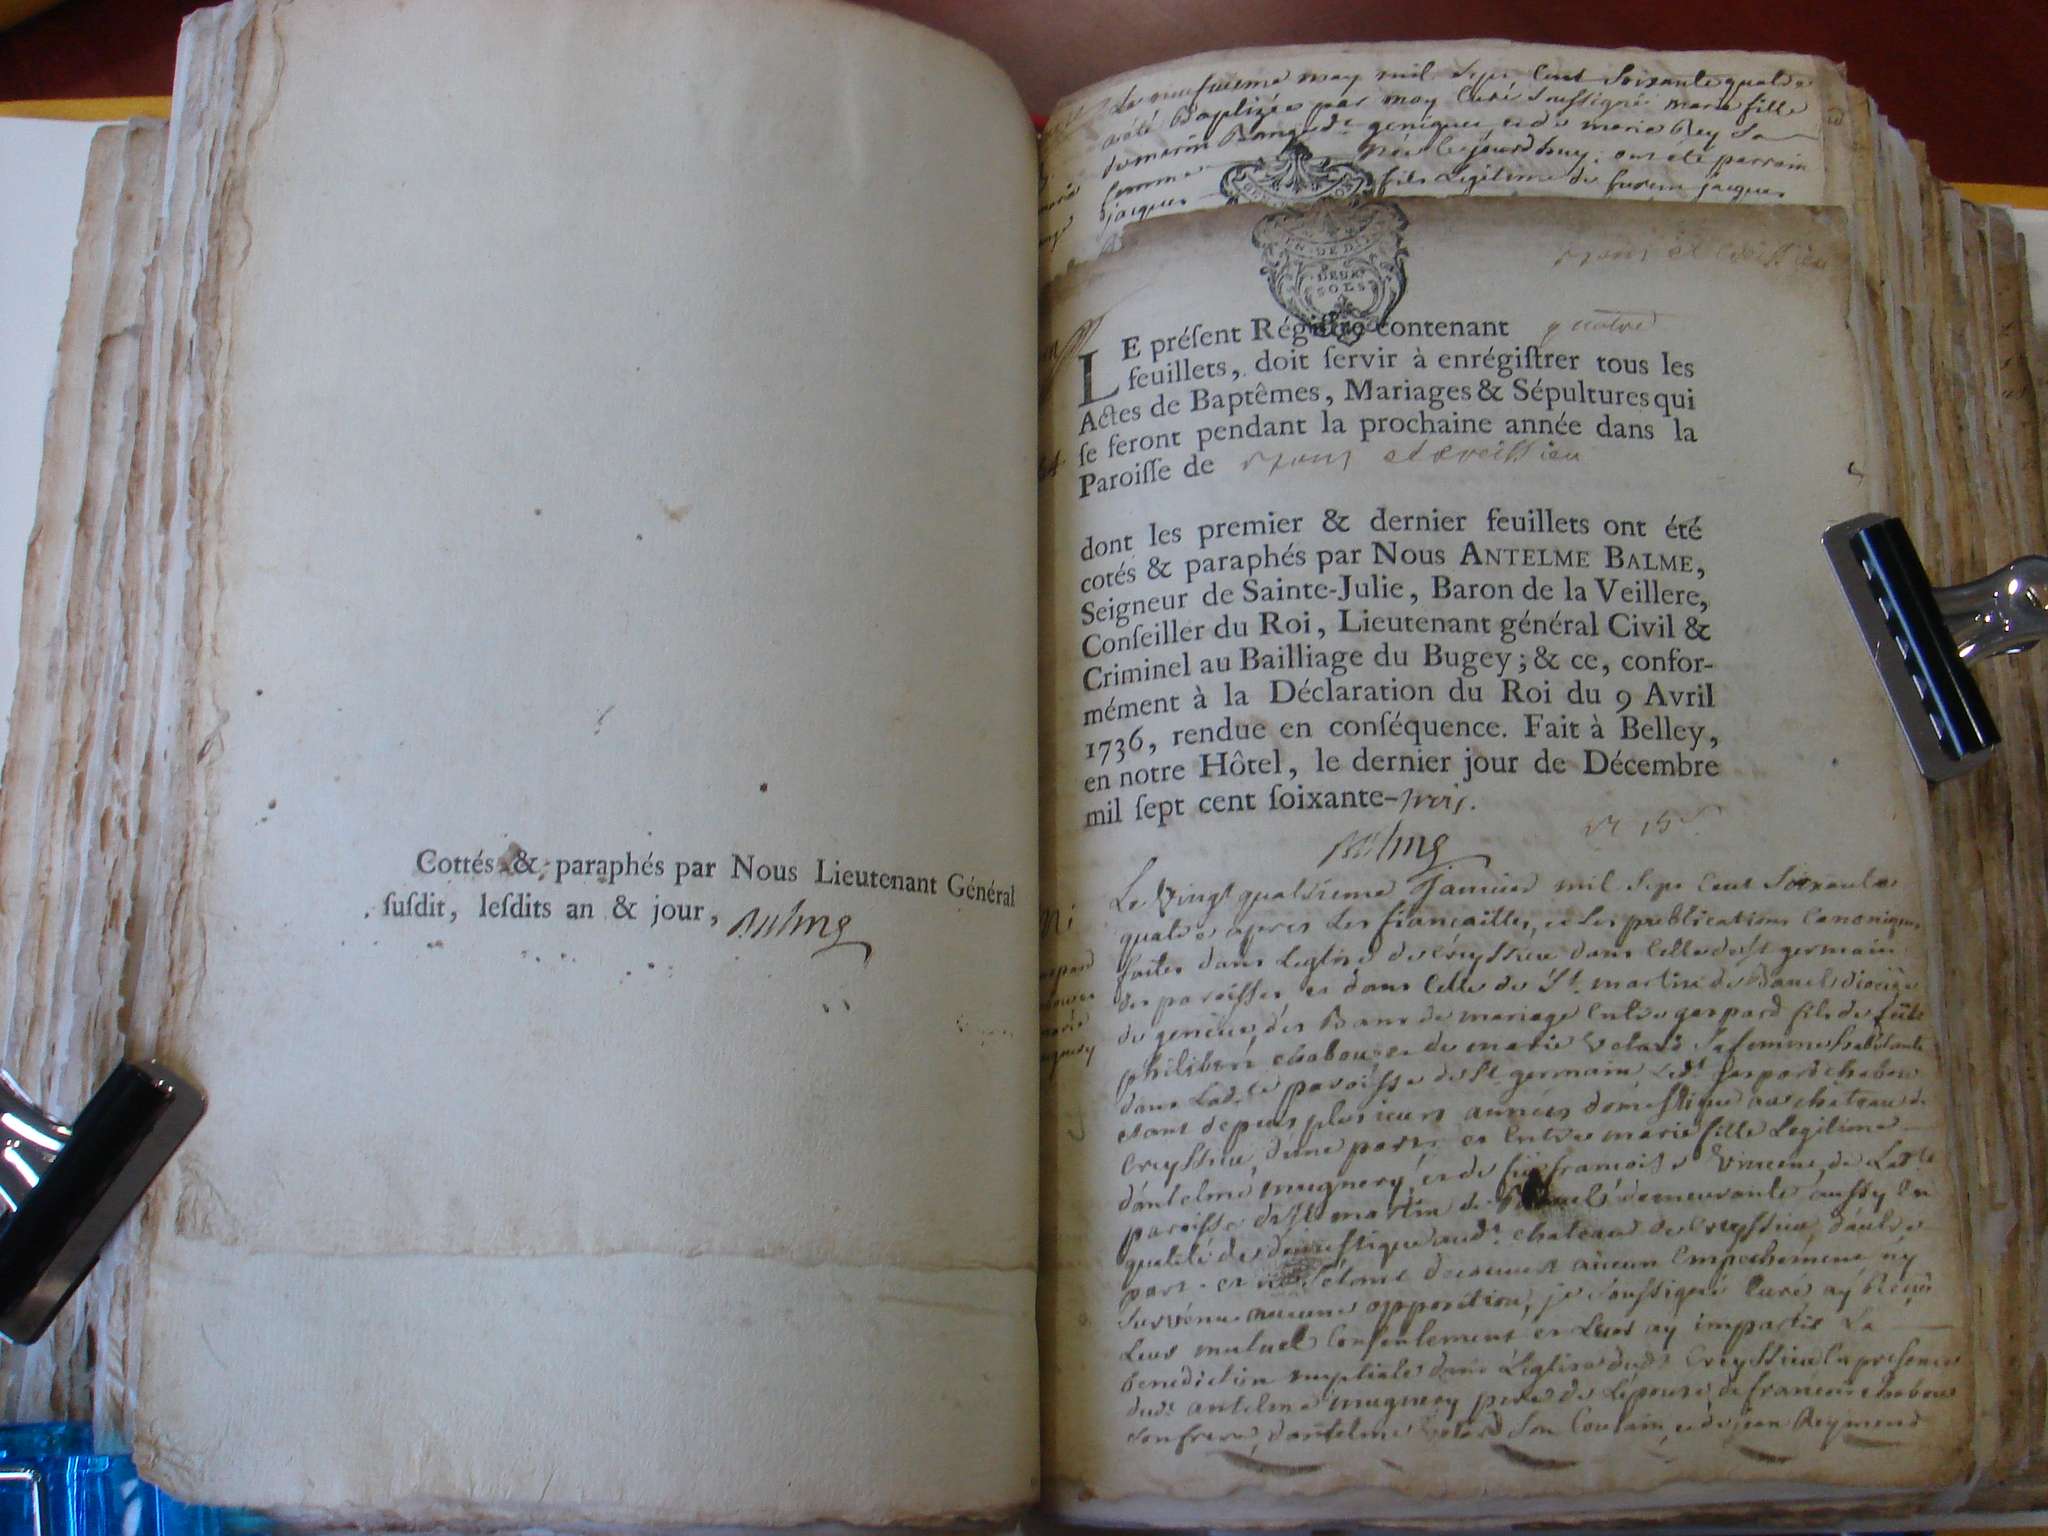 Cottés & paraphés par Nous Lieutenant Général
ſuſdit, leſdits an & jour, Balme
Le neufvieme may mil sept cent soixante quatre
a été Baptizée par moy Curé soussigné marie fille
de marin et de marie Rey sa
femme née ce jourdhuy, ont été parrain
jacques fils legitime de jacques
DEUX
SOLS
LE préſent Régiſtre contenant quatre
feuillets, doit ſervir à enrégiſtrer tous les
Actes de Baptêmes, Mariages & Sépultures qui
ſe feront pendant la prochaine année dans la
Paroiſſe de
dont les premier & dernier feuillets ont été
cotés & paraphés par Nous ANTELME BALME,
Seigneur de Sainte-Julie, Baron de la Veillere,
Conſeiller du Roi, Lieutenant général Civil &
Criminel au Bailliage du Bugey; & ce, confor-
mément à la Déclaration du Roi du 9 Avril
1736, rendue en conſéquence. Fait à Belley,
en notre Hôtel, le dernier jour de Décembre
mil ſept cent ſoixante-trois.
Balme
Le vingt quatrieme Janvier mil sept cent soixante
quatre apres les fiancailles, et les publications Canoniques
faites dans Leglise de Creyssieu dans celle de st germain
des paroisses et dans celle de St. martin de Bavel diocèse
de geneve, des Bans de mariage entre gaspard fils de
philibert chabou et de marie sa femme habitants
dans Ladte paroisse de St germain Ledt gaspard chabou
etant depuis plusieurs années domestique au chateau de
Creyssieu, d'une part, et Entre marie fille Legitime
d'antelme mugnery et de françoise Vincent de Ladte
paroisse de St martin de Bavel demeurante aussy en
qualité de domestique audt chateau de Creyssieu, d'autre
part, et ne s'etant decouvert aucun Empechement ny
survenu aucune opposition, je soussigné Curé ay Reçu
Leur mutuel Consentement et Leur ay impartis La
benediction nuptiale dans L'Eglise dudt Creyssieu en presence
dudt antelme mugnery pere de L'épouse, de francois chabou
son frere, d'antelme son Cousin, et de jean Reymond